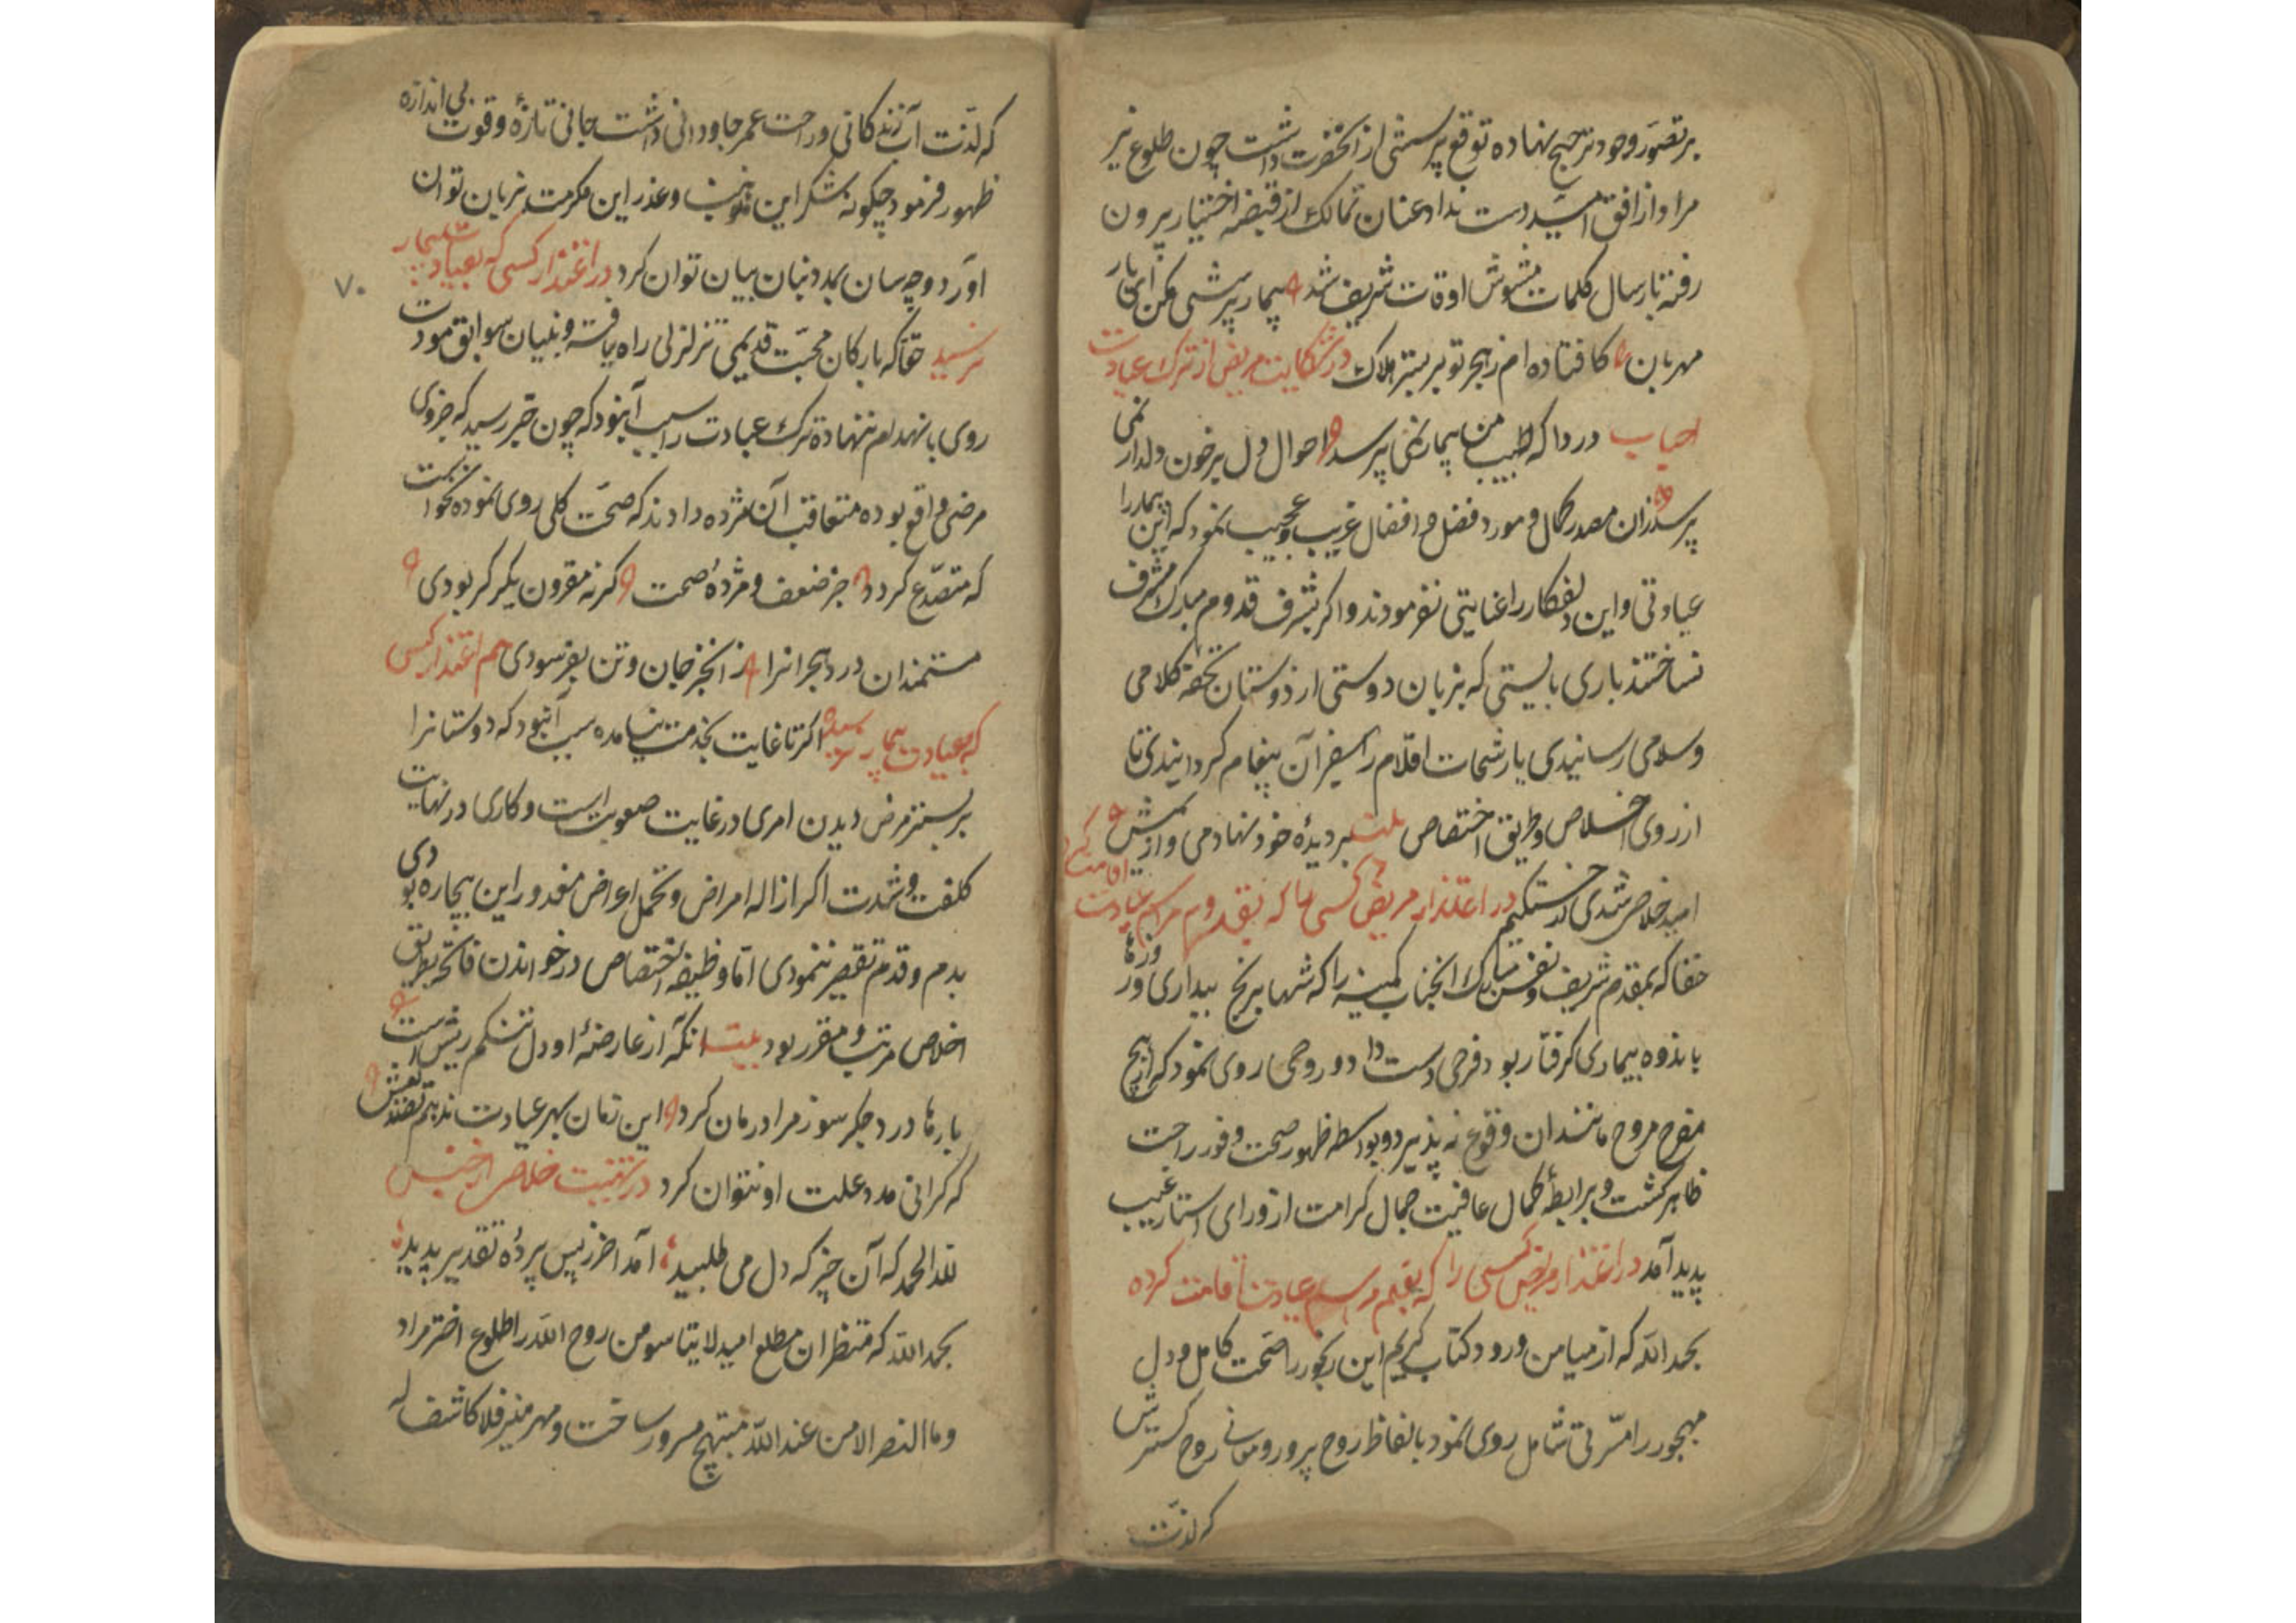 بر تصور وجود ترجیح نهاده توقع پرسشی از آنحضرت داشت چون طلوع نیر
مراد از افق امید دست نداد عنان تمالک از قبضه اختیار بیرون
رفته بارسال کلمات مشوش اوقات شریف شد بیمار پرسشی مکن ای یار
مهربان کافتاده ام ز هجر تو بر بستر هلاک در شکایت مریض از ترک عیادت
احباب دردا که طبیب من بیمار نمی پرسد احوال دل پر خون دلدار نمی
پرسد زان مصدر کمال و مورد فضل و افضال غریب و عجیب نمود که این بیمار را
عیادتی و این دلفکار را عنایتی نفرمودند و اکر بشرف قدوم مبارک مشرف
نساختند باری بایستی که بزبان دوستی از دوستان تحفه کلامی
وسلامی رسانیدی یا رشحات اقلام را سفیر آن پیغام کردانیدی تا
از روی اخلاص و طریق اختصاص بیت بر دیده خود نهادمی و از المش
امید خلاص شدی در اعتذار مریض کسی را که بقدوم مراسم عیادت اقامت کرده
حقا که بمقدم شریف و نفس مبارک آنجناب کمینه را که شبها برنج بیداری و روزها
باندوه بیماری کرفتار بود فرحی دست داد و روحی روی نمود که از هیچ
مفرح مروح مانند آن وقوع نه پذیرد و بواسطه ظهور صحت وفور راحت
ظاهر کشت و برابطهٔ کمال عافیت جمال کرامت از ورای استار غیب
پدید آمد در اعتذار مریض کسی را که بقلم مراسم عیادت اقامت کرده
بحمد الله که از میامن ورود کتاب کریم این رنجور را صحت کامل و دل
مهجور را مسرتی شامل روی نمود بالفاظ روح پرور و معانی روح کسترش
که لذت
که لذت آب زندکانی و راحت عمر جاودانی داشت جانی تازهٔ و قوت بی اندازه
ظهور فرمود چکونه شکر این موهبت و عذر این مکرمت بزبان توان
آورد و چه سان بمدد بنان بیان توان کرد در اعتذار کسی که بعیادت بیمار
۷۰
نرسید حقا که بارکان محبت قدیمی تزلزلی راه یافته و بنیان سوابق مودت
روی بانهدام ننهاده ترک عیادت را سبب آن بود که چون خبر رسید که جزوی
مرضی واقع بوده متعاقب آن مژده دادند که صحت کلی روی نموده نخواست
که متصدع کردد خبر ضعف و مژدهٔ صحت کرنه مقرون یکدکر بودی
مستمندان درد هجرانرا ز آن خبر جان و تن بفرسودی هم اعتذار کسی
که بعیادت بیمار نرسیده اکر تا غایت بخدمت نیامده سبب آن بود که دوستانرا
بر بستر مرض دیدن امری در غایت صعوبت است و کاری در نهایت
کلفت و شدت اکر ازاله امراض و تحمل اعراض مقدور این بیچاره بودی
بدم و قدم تقصیر ننمودی اما وظیفه اختصاص در خواندن فاتحه بطریق
اخلاص مرتب و مقرر بود بیت آنکه از عارضهٔ او دل تنکم ریش است
بارها درد جکر سوز مرا درمان کرد این زمان بهر عیادت ندهم تصدیعش
که کرانی مدد علت او نتوان کرد در تهنیت خلاص از حبس
لله الحمد که آن چیز که دل می طلبید آمد آخر ز پس پردهٔ تقدیر پدید
بحمد الله که منتظران مطلع امید لا تیأسو من روح الله را طلوع اختر مراد
وما النصر الا من عند الله مبتهج و مسرور ساخت و مهر منیر فلا کاشف له